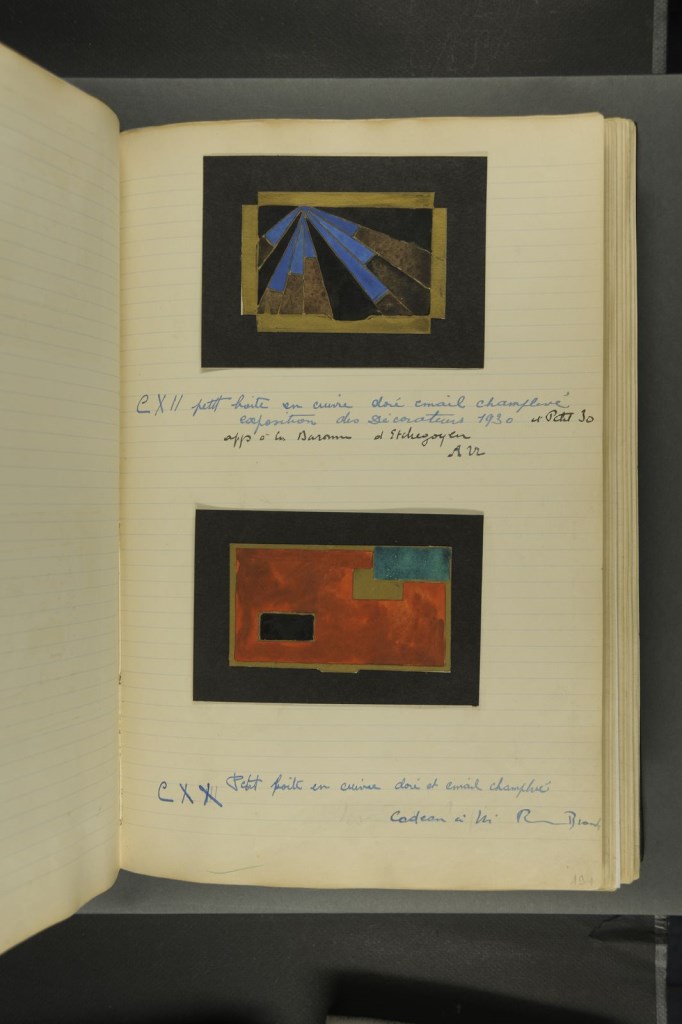 CXII petit boite en cuivre doré email champlevé
exposition des Décorateurs 1930 et Petit 30
app à la Baronne d'Etchegoyen
CXX Petit boite en cuivre doré et email champlevé
Cadeau à